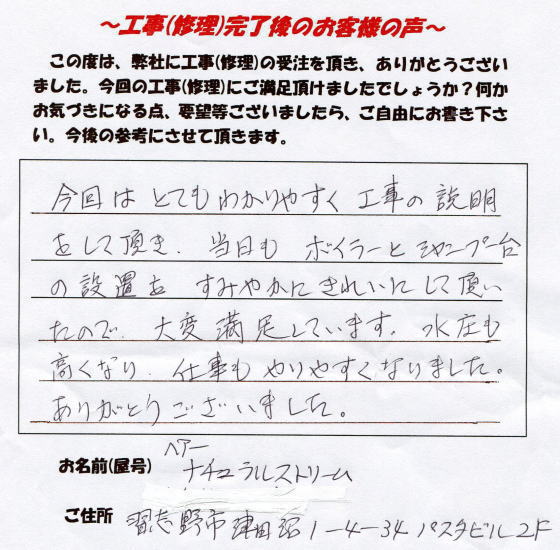 ～工事(修理)完了後のお客様の声～
この度は、弊社に工事(修理)の受注を頂き、ありがとうござい
ました。今回の工事(修理)にご満足頂けましたでしょうか？何か
お気づきになる点、要望等ございましたら、ご自由にお書き下さ
い。今後の参考にさせて頂きます。
今回は とてもわかりやすく 工事の説明
をして頂き、当日も ボイラーと シャンプー台
の設置を すみやかに きれいに して頂い
たので、大変満足しています。水圧も
高くなり、仕事も やりやすくなりました。
ありがとうございました。
ヘアー
お名前(屋号) ナチュラルストリーム
ご住所 習志野市津田沼 1-4-34 パスタビル 2F